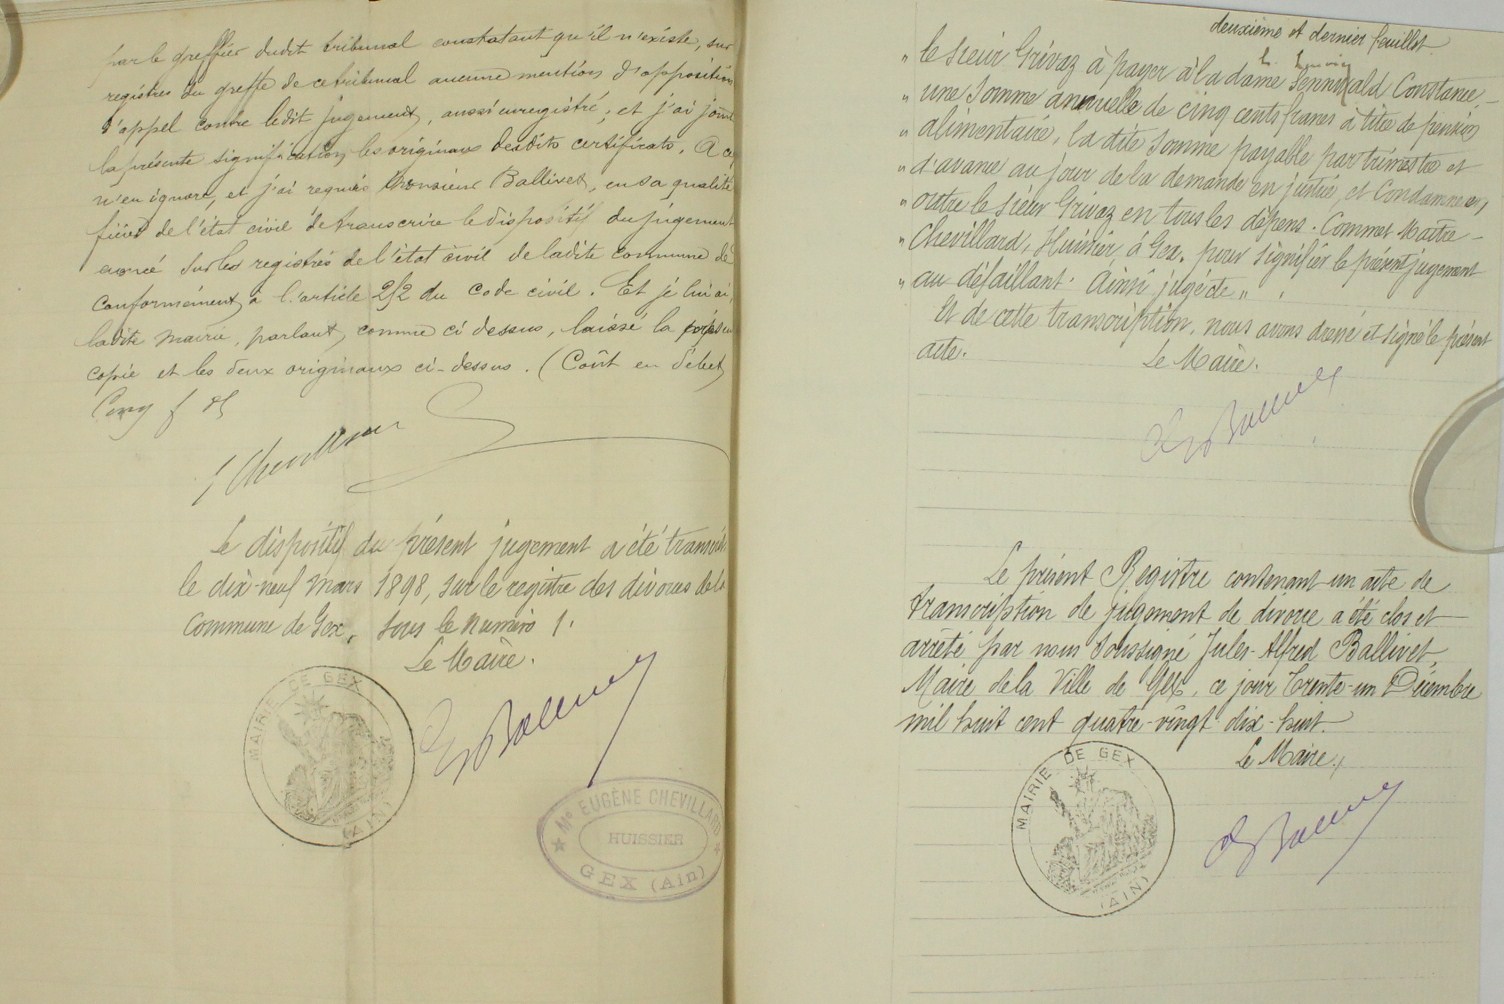 par le greffier dudit tribunal constatant qu'il n'existe, sur
registres du greffe de ce tribunal aucune mention d'opposition
d'appel contre ledit jugement, aussi enregistré; et j'ai joint
la présente signification les originaux desdits certificats. A ce
n'en ignore, et j'ai requis Monsieur Ballivet, en sa qualité
ficier de l'état civil de transcrire le dispositif du jugement
énoncé sur les registres de l'état civil de ladite commune de
conformément à l'article 252 du code civil. Et je lui ai,
ladite mairie, parlant comme ci dessus, laissé la
copie et les deux originaux ci-dessus. (Coût en débet
Cinq f
Chevillard
Le dispositif du présent jugement a été transcrit
le dix-neuf mars 1898, sur le registre des divorces de la
Commune de Gex, sous le numéro 1.
Le Maire.
MAIRIE DE GEX
(AIN)
Me EUGÈNE CHEVILLARD
HUISSIER
GEX (Ain)
deuxième et dernier feuillet
" le sieur Grivaz à payer à la dame Constance
" une somme annuelle de cinq cents francs à titre de pension
" alimentaire, la dite somme payable par trimestre et
" d'avance au jour de la demande en justice, et Condamne en
" outre le sieur Grivaz en tous les dépens. Commet Maître
" Chevillard, Huissier, à Gex, pour signifier le présent jugement
" au défaillant. Ainsi jugé de "
Et de cette transcription, nous avons dressé et signé le présent
acte.
Le Maire.
Le présent Registre contenant un acte de
transcription de jugement de divorce a été clos et
arrêté par nous soussigné Jules-Alfred Ballivet,
Maire de la Ville de Gex, ce jour trente-un Décembre
mil huit cent quatre-vingt dix-huit.
Le Maire,
MAIRIE DE GEX
(AIN)